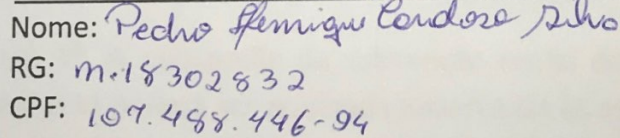 Nome: Pedro Henrique Cardoso Silva
RG: M.18302832
CPF: 107.488.446-94